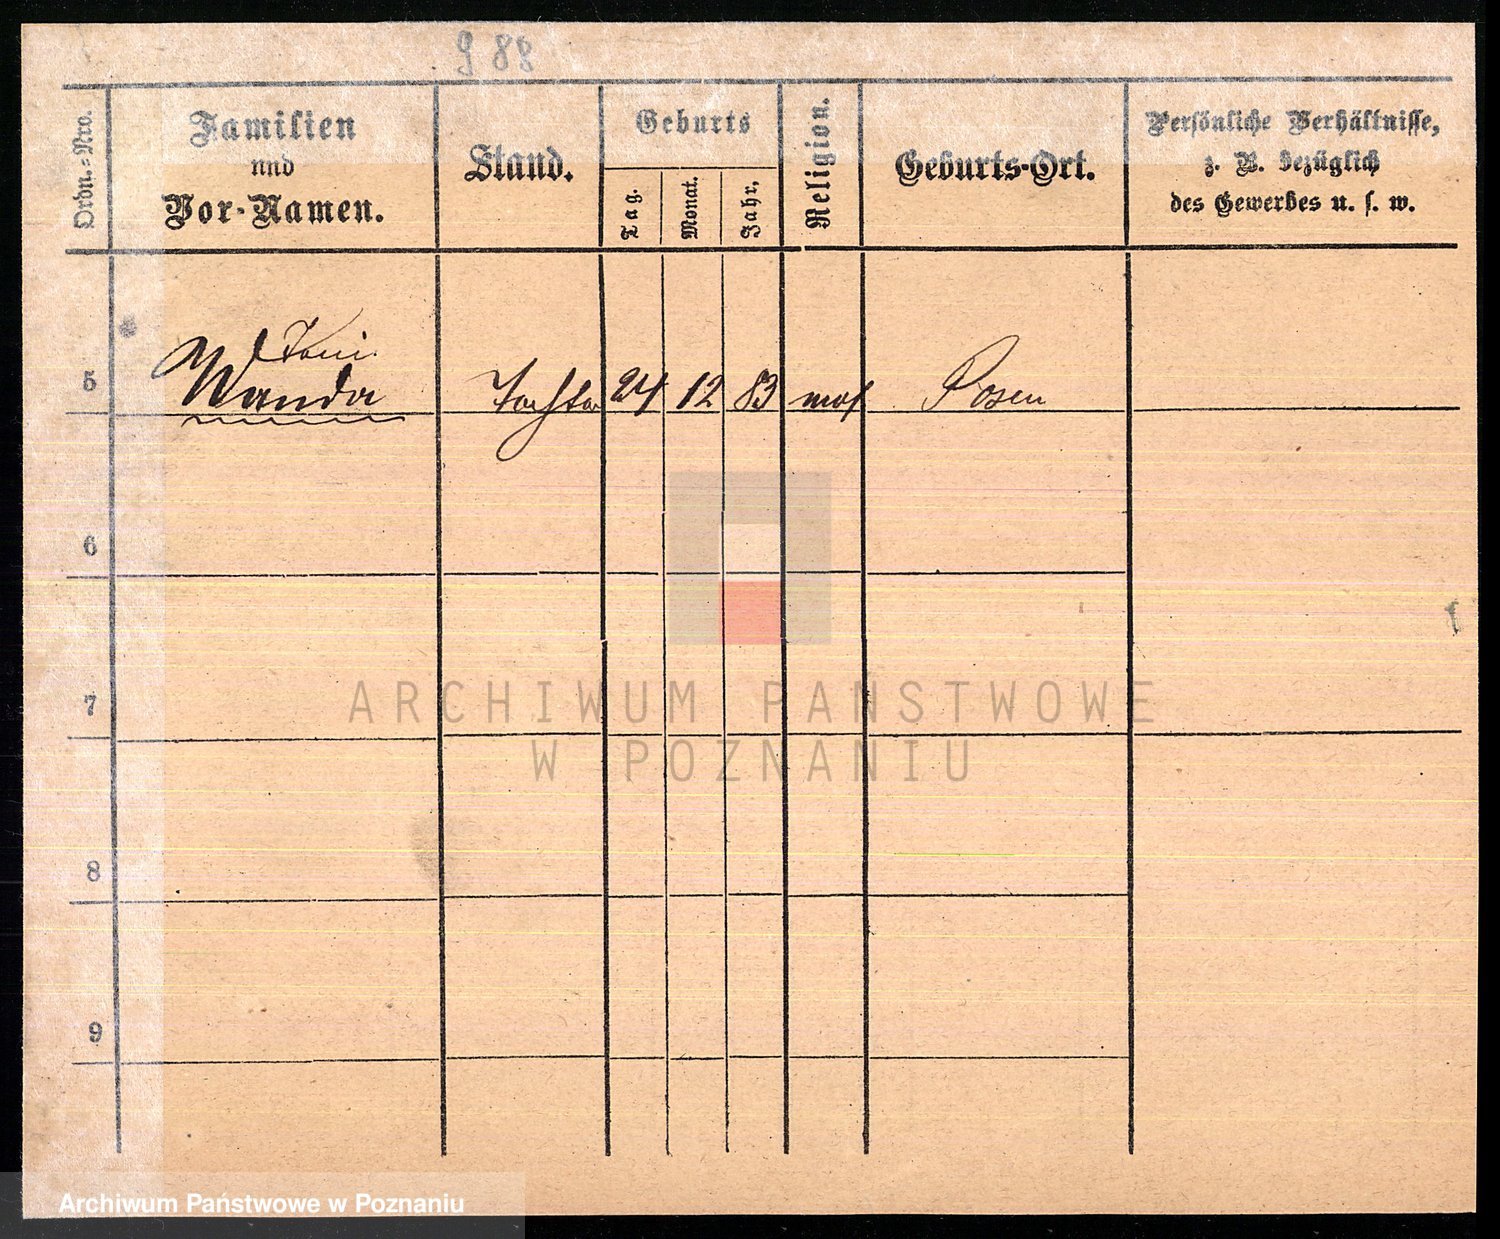 9 88
Ordn.=Nro.
Familien
und
Vor-Namen.
Stand.
Geburts
Tag.
Monat.
Jahr.
Religion.
Geburts-Ort.
Persönliche Verhältnisse,
z. B. bezüglich
des Gewerbes u. s. w.
Toni
5 Wanda Tochter 24 12 83 mos Posen
6
7
8
9
ARCHIWUM PAŃSTWOWE
W POZNANIU
Archiwum Państwowe w Poznaniu